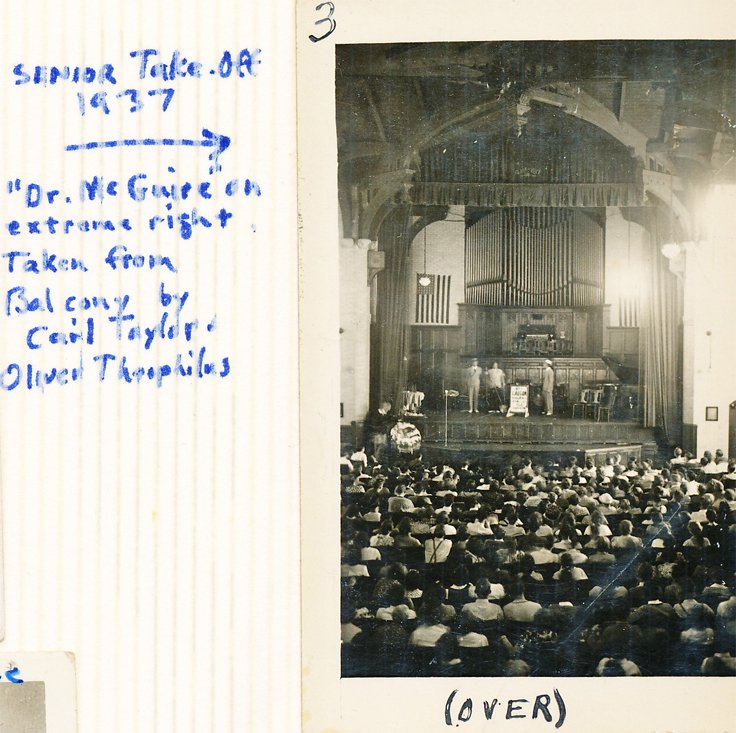 SENIOR Take-Off
1937
"Dr. McGuire" on
extreme right.
Taken from
Balcony by
Carl Taylor &
Oliver Theophilus
3
(OVER)